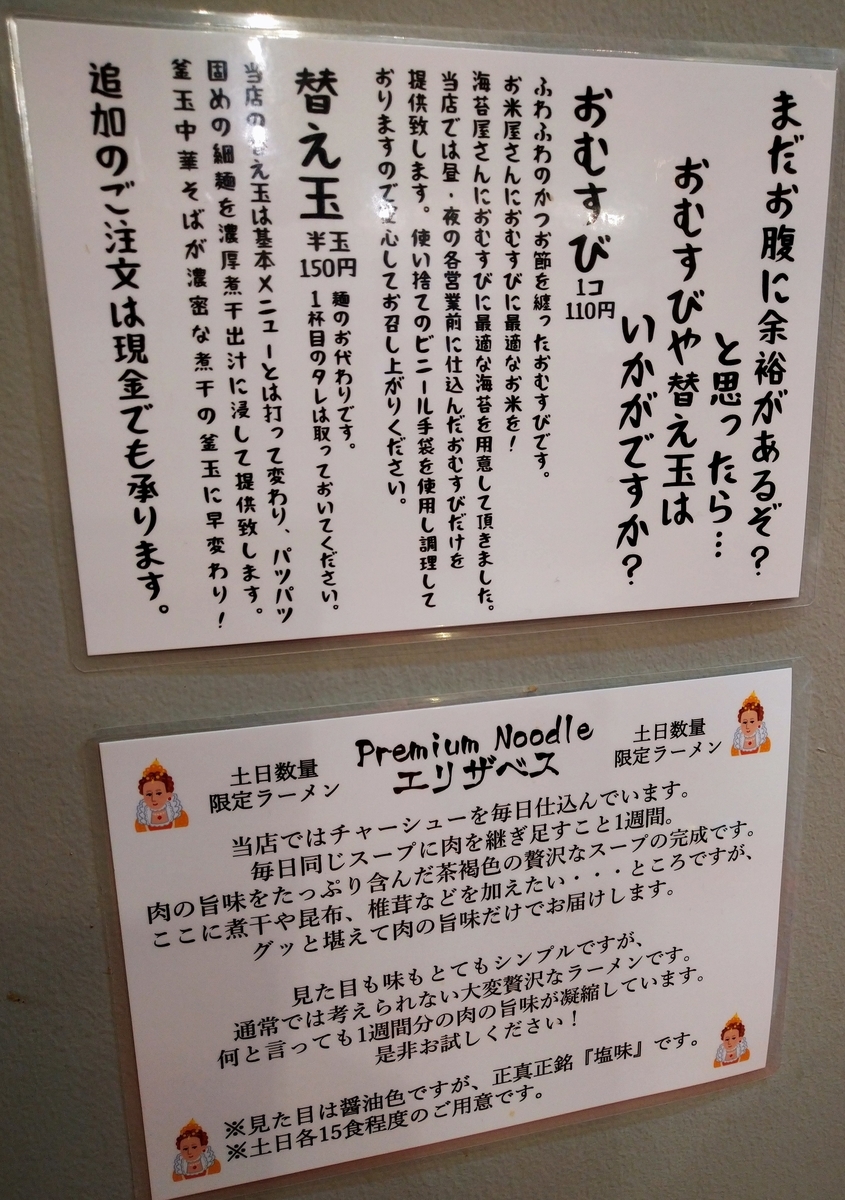 まだお腹に余裕があるぞ？
と思ったら…
おむすびや替え玉は
いかがですか？
おむすび
1コ
110円
ふわふわのかつお節を纏ったおむすびです。
お米屋さんにおむすびに最適なお米を！
海苔屋さんにおむすびに最適な海苔を用意して頂きました。
当店では昼・夜の各営業前に仕込んだおむすびだけを
提供致します。使い捨てのビニール手袋を使用し調理して
おりますので安心してお召し上がりください。
替え玉
半玉
150円
麺のお代わりです。
1杯目のタレは取っておいてください。
当店の替え玉は基本メニューとは打って変わり、パツパツ
固めの細麺を濃厚煮干出汁に浸して提供致します。
釜玉中華そばが濃密な煮干の釜玉に早変わり！
追加のご注文は現金でも承ります。
土日数量
限定ラーメン
Premium Noodle
エリザベス
土日数量
限定ラーメン
当店ではチャーシューを毎日仕込んでいます。
毎日同じスープに肉を継ぎ足すこと1週間。
肉の旨味をたっぷり含んだ茶褐色の贅沢なスープの完成です。
ここに煮干や昆布、椎茸などを加えたい・・・ところですが、
グッと堪えて肉の旨味だけでお届けします。
見た目も味もとてもシンプルですが、
通常では考えられない大変贅沢なラーメンです。
何と言っても1週間分の肉の旨味が凝縮しています。
是非お試しください！
※見た目は醤油色ですが、正真正銘『塩味』です。
※土日各15食程度のご用意です。